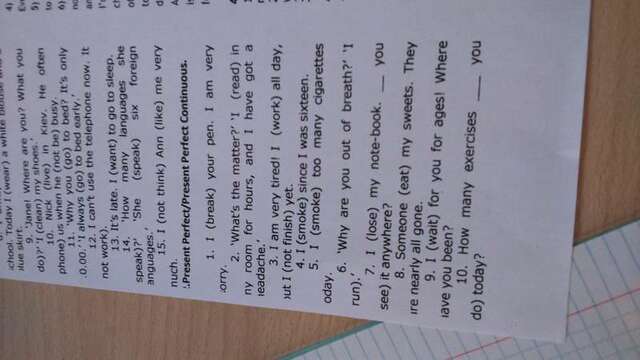 school. Today I (wear) a white blouse
blue skirt.
9. 'Jane! Where are you? What you
do)?' 'I (clean) my shoes.'
10. Nick (live) in Kiev. He often
phone) us when he (not be) busy.
11. 'Why you (go) to bed? It's only
.0.00.' 'I always (go) to bed early.'
12. I can't use the telephone now. It
not work).
13. It's late. I (want) to go to sleep.
14. 'How many languages she
speak)?' 'She (speak) six foreign
anguages.'
15. I (not think) Ann (like) me very
nuch.
.Present Perfect/Present Perfect Continuous.
1. I (break) your pen. I am very
orry.
2. 'What's the matter?' 'I (read) in
ny room for hours, and I have got a
eadache.'
3. I am very tired! I (work) all day,
out I (not finish) yet.
4. I (smoke) since I was sixteen.
5. I (smoke) too many cigarettes
oday.
6. 'Why are you out of breath?' 'I
run).'
7. I (lose) my note-book. ___ you
see) it anywhere?
8. Someone (eat) my sweets. They
are nearly all gone.
9. I (wait) for you for ages! Where
have you been?
10. How many exercises ___ you
do) today?
4)
5)
6)